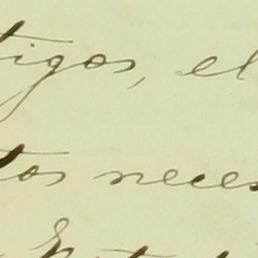 tigos, el
tos neces